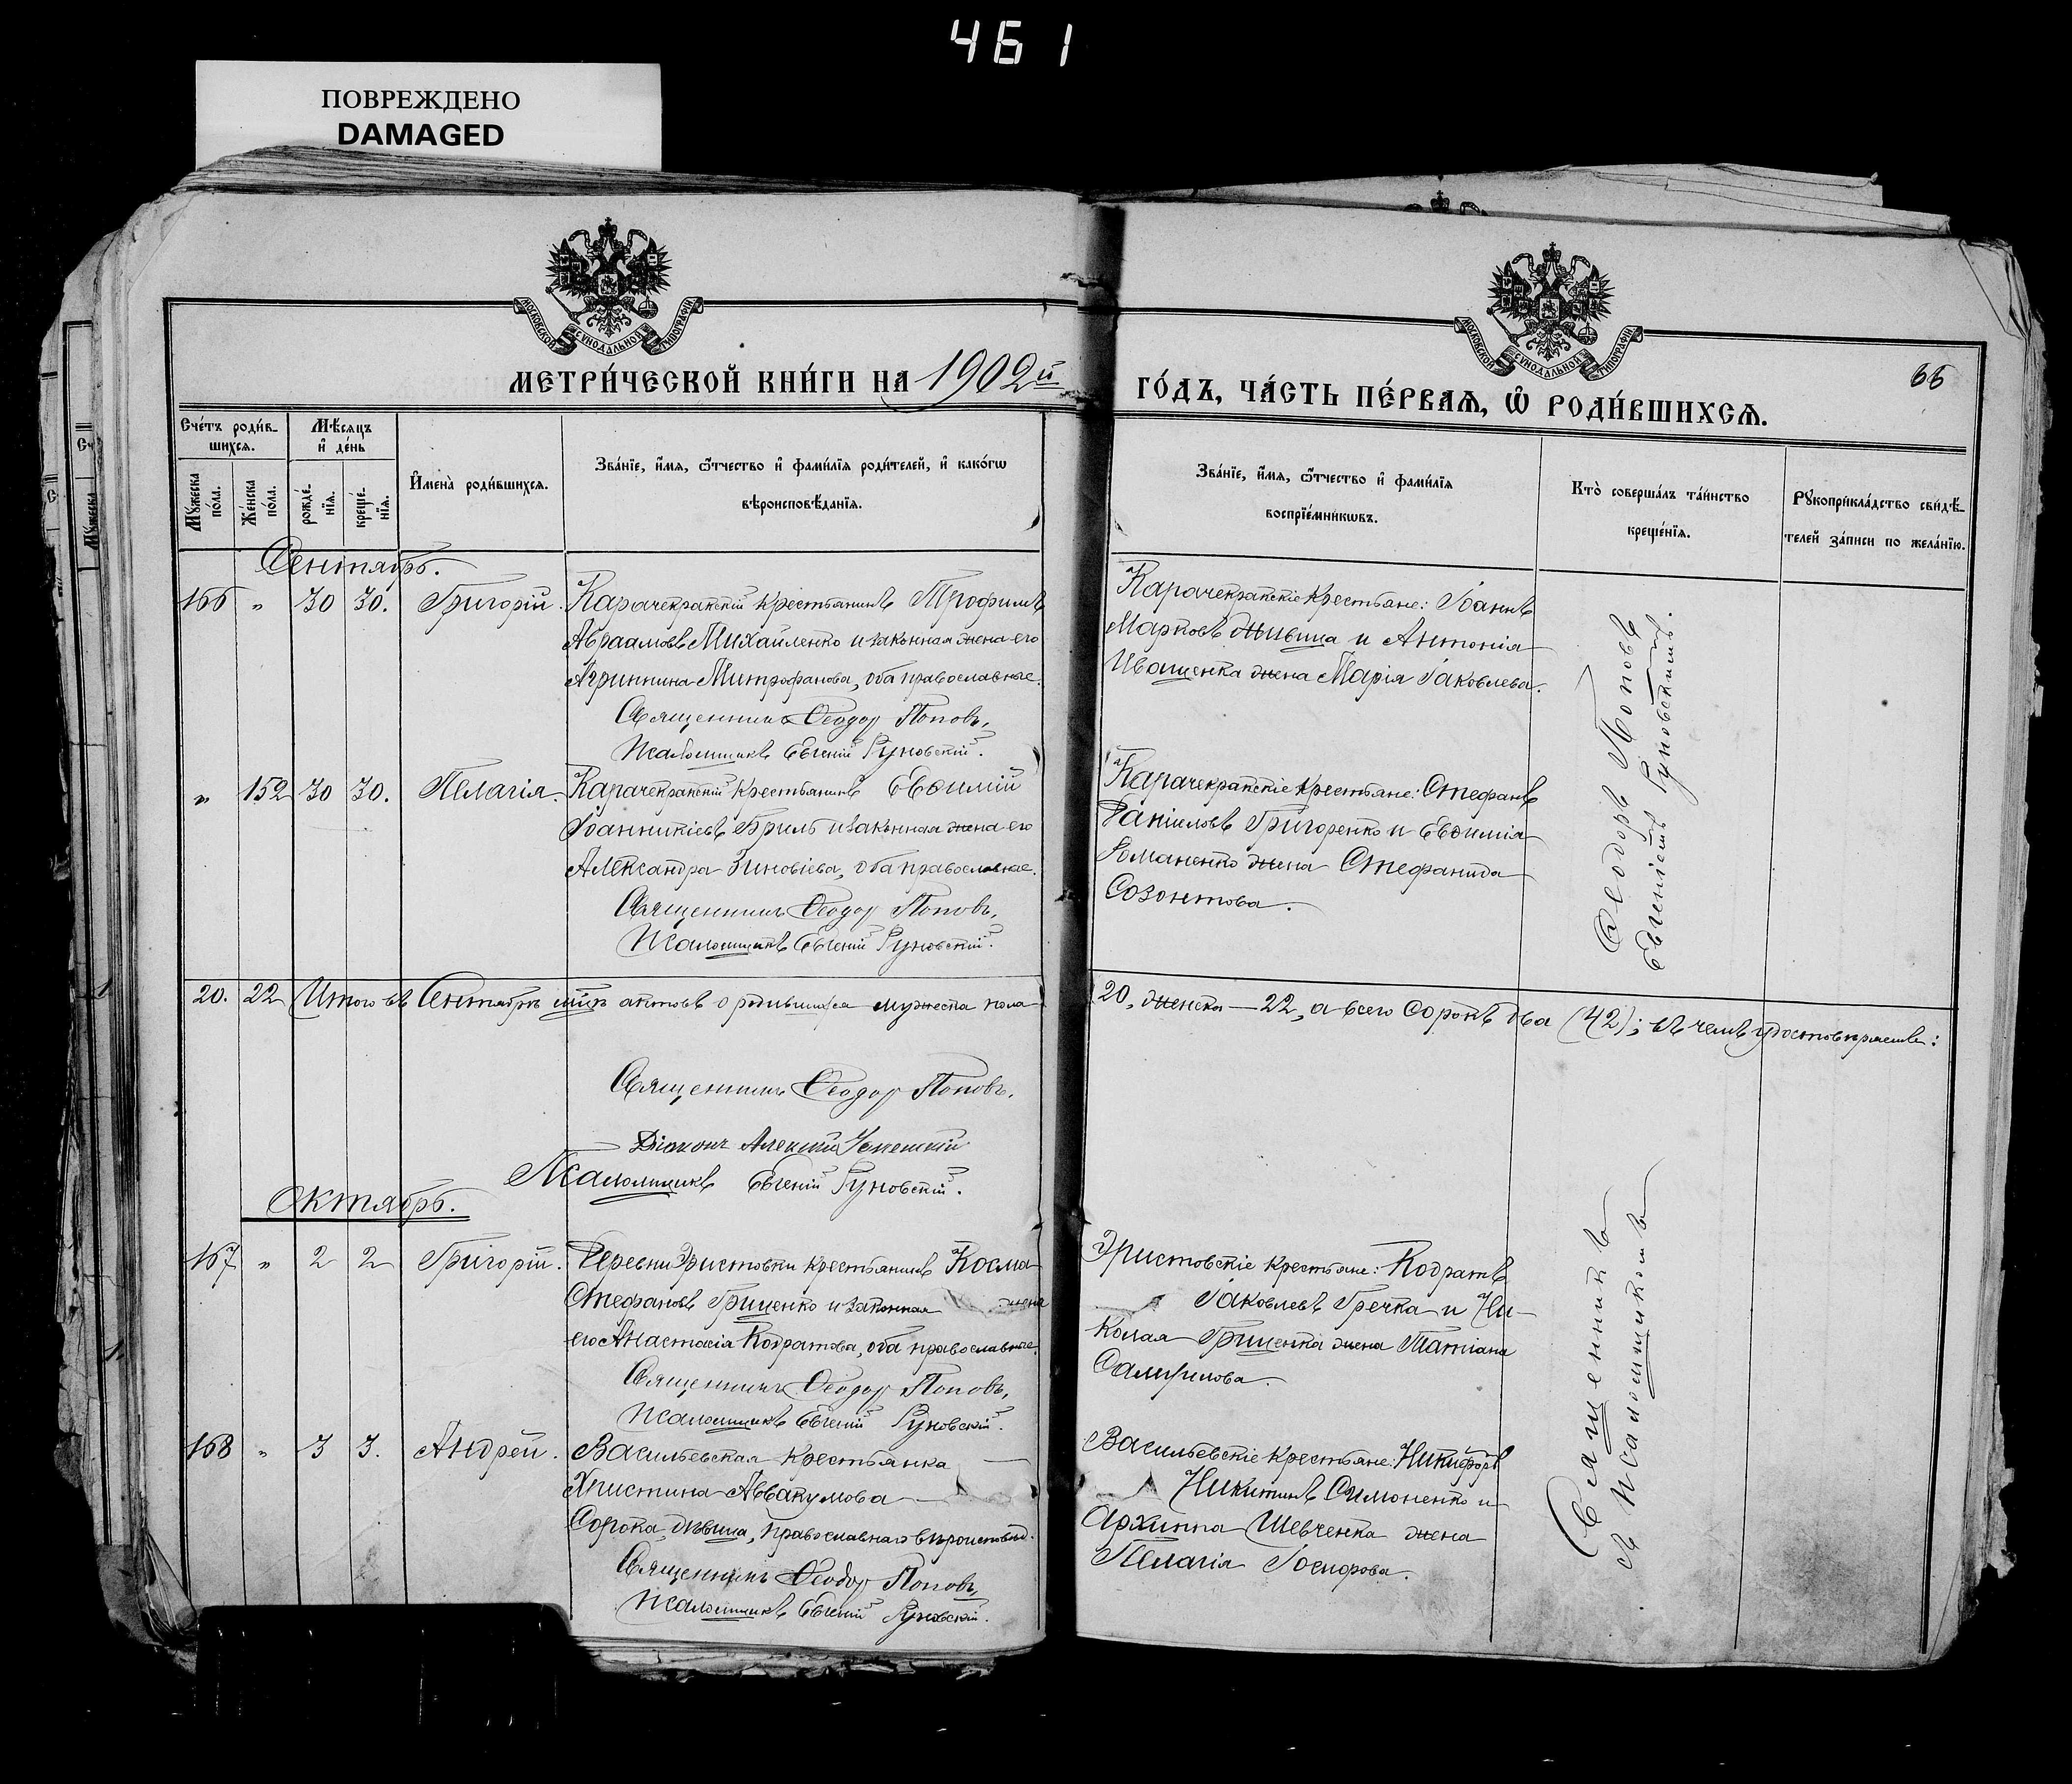 461
ПОВРЕЖДЕНО
DAMAGED
МОСКОВСКОЙ СѴНОДАЛЬНОЙ ТИПОГРАФІИ
МОСКОВСКОЙ СѴНОДАЛЬНОЙ ТИПОГРАФІИ
66
МЕТРИ́ЧЕСКОЙ КНИ́ГИ НА 1902й
ГО́ДЪ, ЧА́СТЬ ПЕ́РВАѦ, Ѽ РОДИ́ВШИХСѦ.
Сче́тъ роди́в-
шихся.
Мѣ́сяцъ
и҆ де́нь
Мꙋ́жеска
по́ла.
Же́нска
по́ла.
рожде́-
нїя.
креще́-
нїя.
И҆мена̀ роди́вшихся.
Зва́нїе, и҆́мя, ѻ҆́тчество и҆ фами́лїя роди́телей, и҆ како́гѡ
вѣроисповѣ́данїя.
Зва́нїе, и҆́мя, ѻ҆́тчество и҆ фами́лїя
воспрїе́мникѡвъ.
Кто̀ соверша́лъ та́инство
креще́нїя.
Рꙋкоприкла́дство свидѣ́-
телей за́писи по жела́нїю.
Сентябрь.
166 " 30 30. Григорій. Карачекракскій крестьянинъ Трофимъ
Авраамовъ Михайленко и законная жена его
Агриппина Митрофанова, оба православные.
Священникъ Ѳеодор Поповъ,
Псаломщикъ Евгеній Руновскій.
Карачекракскіе крестьяне: Іоаннъ
Марковъ и Антонія
Иващенка жена Марія Іаковлева.
" 152 30 30. Пелагія. Карачекракскій крестьянинъ Евѳимій
Іоанникіевъ Бриль и законная жена его
Александра Зиновіева, оба православные.
Священникъ Ѳеодор Поповъ,
Псаломщикъ Евгеній Руновскій.
Карачекракскіе крестьяне: Стефанъ
Даніиловъ Григоренко и Евѳимія
Романенко жена Стефанида
Созонтова.
Ѳеодоръ Поповъ
Евгеніемъ Руновскимъ.
20. 22 Итого въ Сентябрѣ мцѣ актовъ о родившихся мужеска пола
20, женска — 22, а всего сорокъ два (42); въ чемъ удостовѣряемъ:
Священникъ Ѳеодор Поповъ.
Діаконъ Алексій
Псаломщикъ Евгеній Руновскій.
Октябрь.
167 " 2 2 Григорій. Деревни Эристовки крестьянинъ Косма
Стефановъ Гриценко и законная жена
его Анастасія Кодратова, оба православные.
Священникъ Ѳеодор Поповъ,
Псаломщикъ Евгеній Руновскій.
Эристовскіе крестьяне: Кодратъ
Іаковлевъ Гречка и Ни-
колая Гриценка жена Татіана
168 " 3 3. Андрей. Васильевская крестьянка
Христина Аввакумова
Сорока, дѣвица, православнаго вѣроисповѣд.
Священникъ Ѳеодор Поповъ,
Псаломщикъ Евгеній Руновскій.
Васильевскіе крестьяне: Никифоръ
Никитинъ Симоненко и
Архиппа Шевченка жена
Пелагія Іосифова.
Священникъ
и Псаломщикомъ